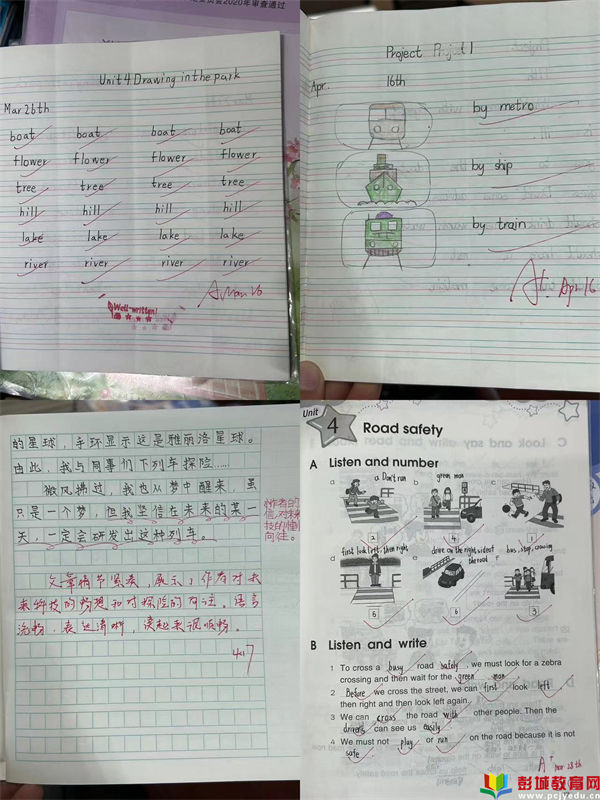 委员会2020年审查通过
Unit 4 Drawing in the park
Mar 26th
boat boat boat boat
flower flower flower flower
tree tree tree tree
hill hill hill hill
lake lake lake lake
river river river river
A Mar 26
Well-written!
Project Project 1
Apr. 16th
by metro
by ship
by train
A+ Apr 16
的星球，手环显示这是雅丽洛星球。
由比，我与同事们下列车探险……
微风拂过，我也从梦中醒来，虽
只是一个梦，但我坚信在未来的某一
天，一定会研发出这种列车。
文章情节紧凑，展示了作者对未
来科技的畅想和对探险的向往。语言
流畅，表达清晰，读起来很顺畅。
4.17
Unit 4 Road safety
A Listen and number
a a Don't run b green man c
2 4 1
d first look left, then right e drive on the right side of the road f bus stop, crossing
5 6 3
B Listen and write
1 To cross a busy road safely, we must look for a zebra
crossing and then wait for the green man.
2 Before we cross the street, we can first look left
then right and then look left again.
3 We can cross the road with other people. Then the
drivers can see us easily.
4 We must not play or run on the road because it is not
safe.
A+ Mar 28th
彭城教育网
www.pcjyedu.cn